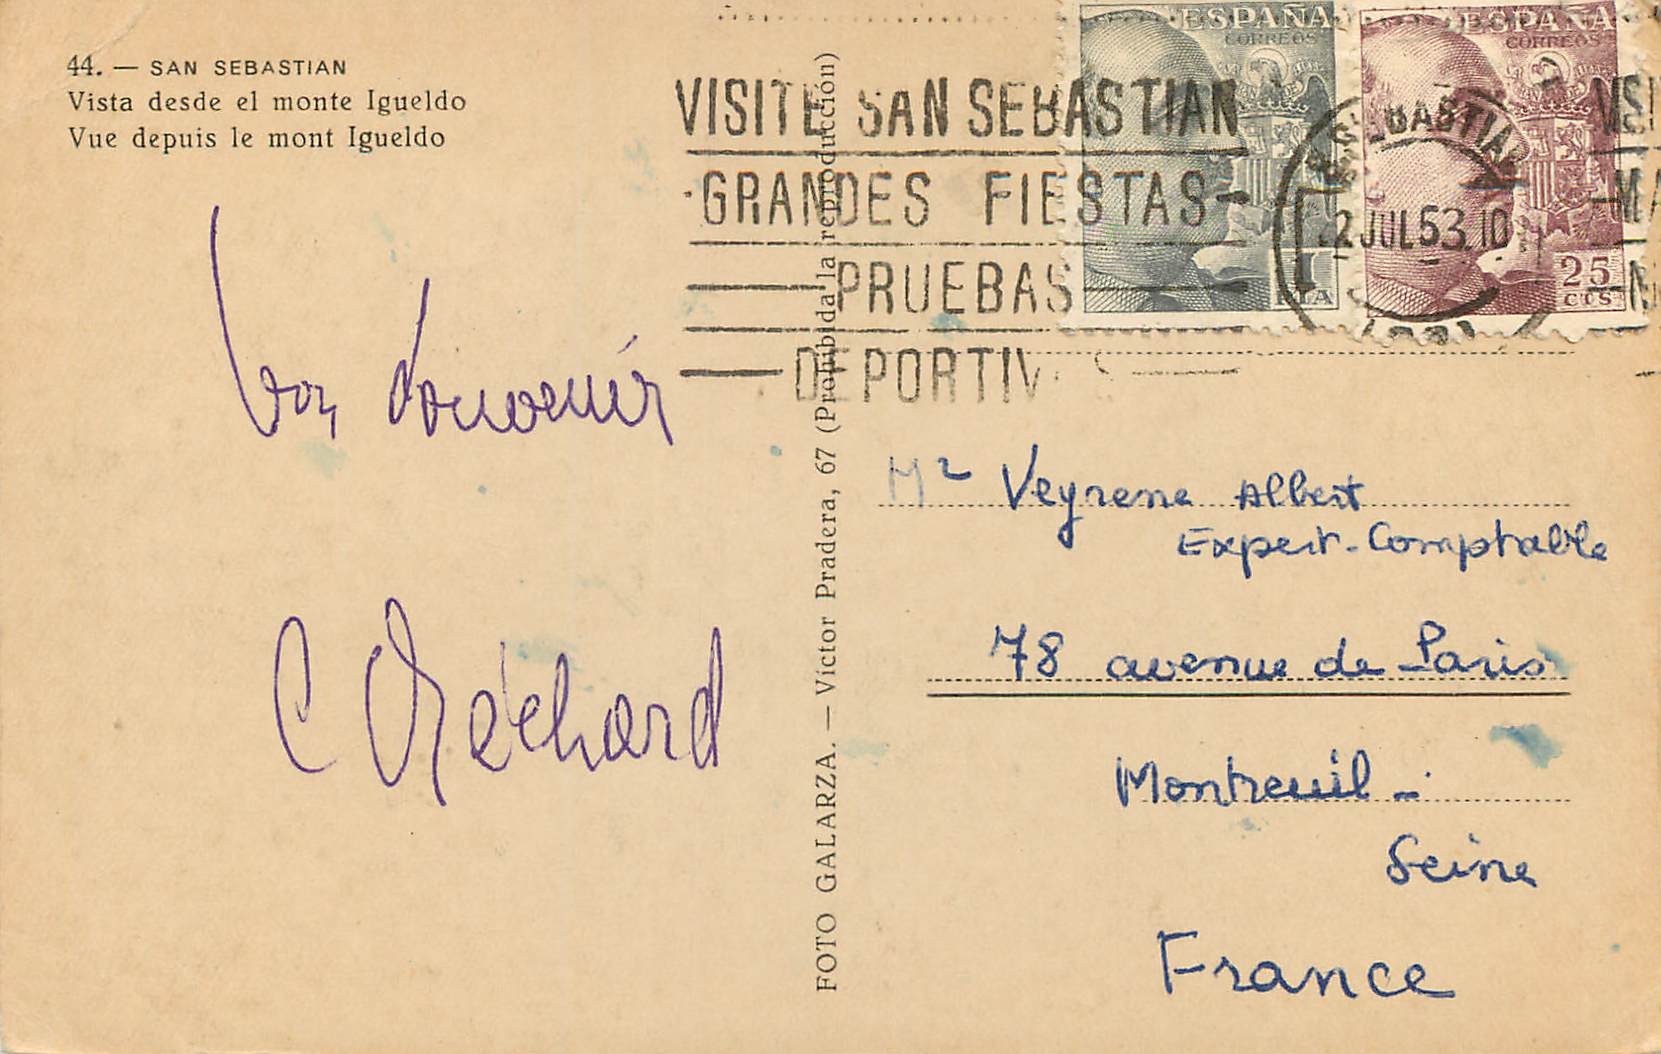 44. — SAN SEBASTIAN
Vista desde el monte Igueldo
Vue depuis le mont Igueldo
ESPAÑA
CORREOS
1
PTA
ESPAÑA
CORREOS
25
CTS
VISITE SAN SEBASTIAN
GRANDES FIESTAS
PRUEBAS
DEPORTIV
SEBASTIAN
2 JUL 53. 10
Bon souvenir
FOTO GALARZA. — Víctor Pradera, 67 (Prohibida la reproducción)
Mr Veyrene Albert
Expert-Comptable
78 avenue de Paris
Montreuil -
Seine
France